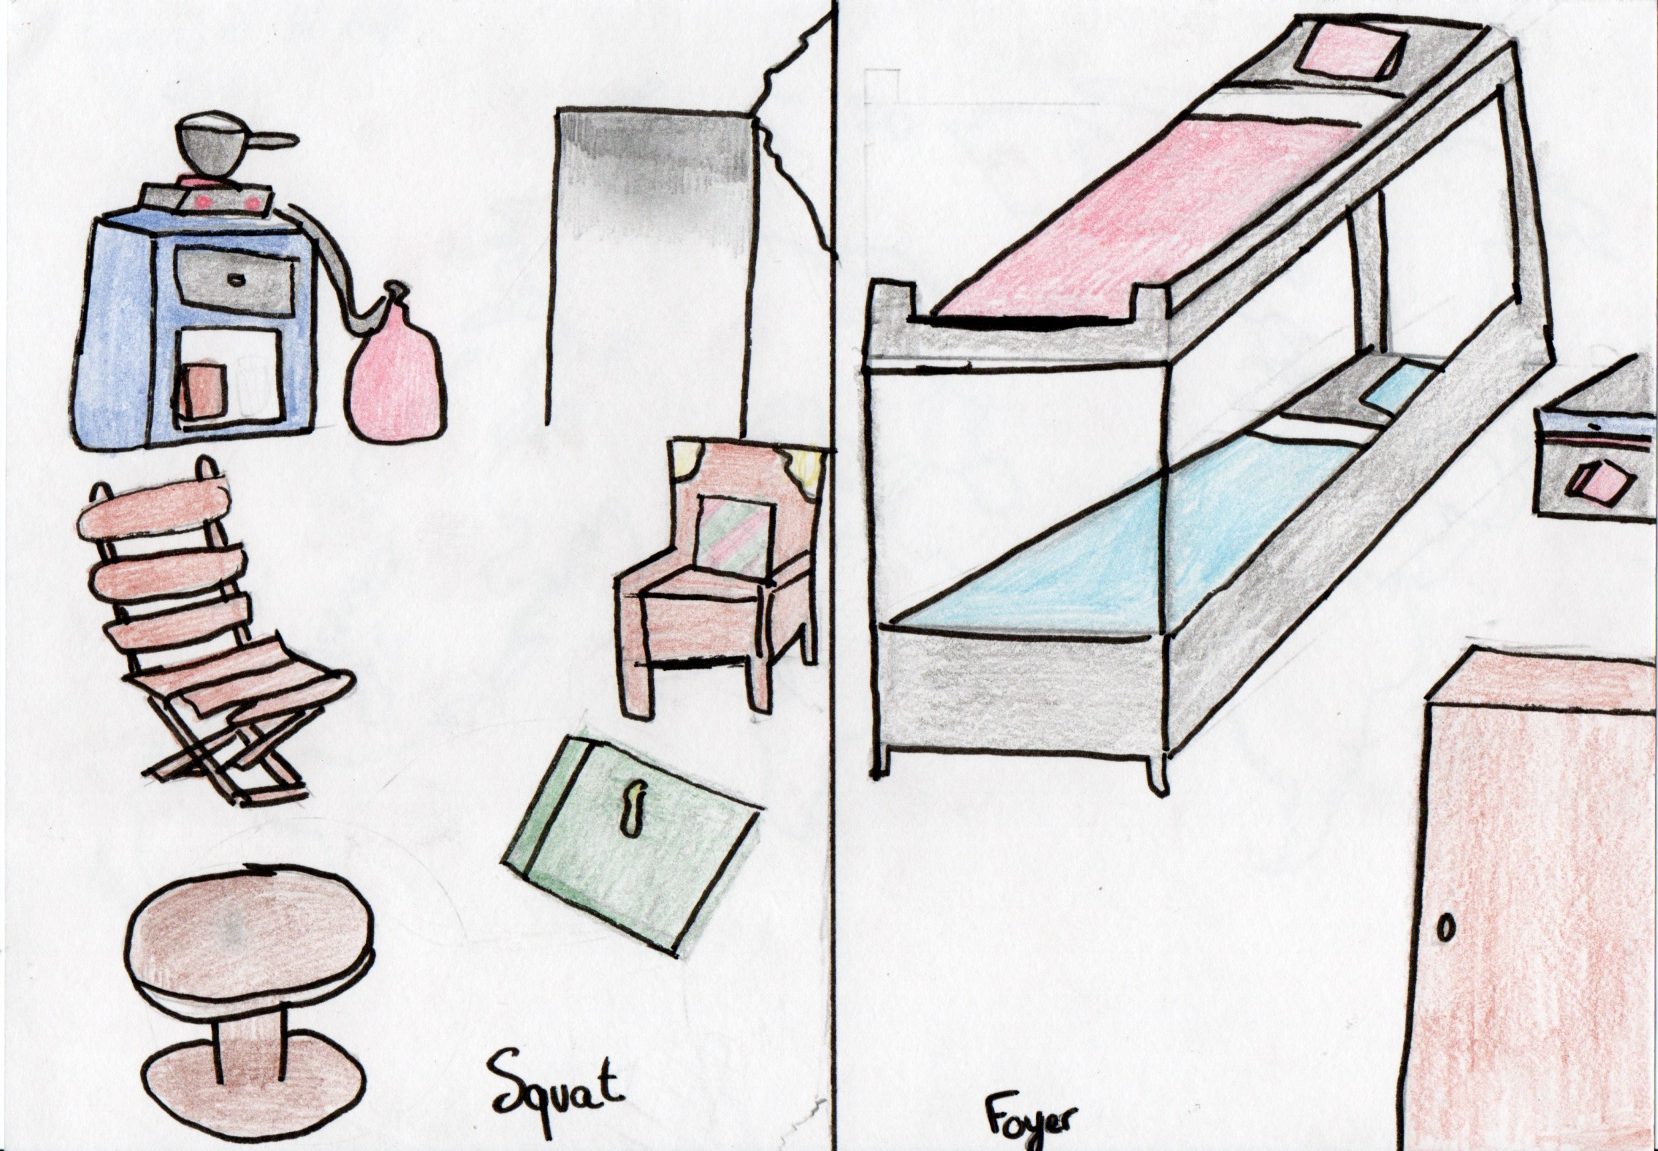 Squat
Foyer